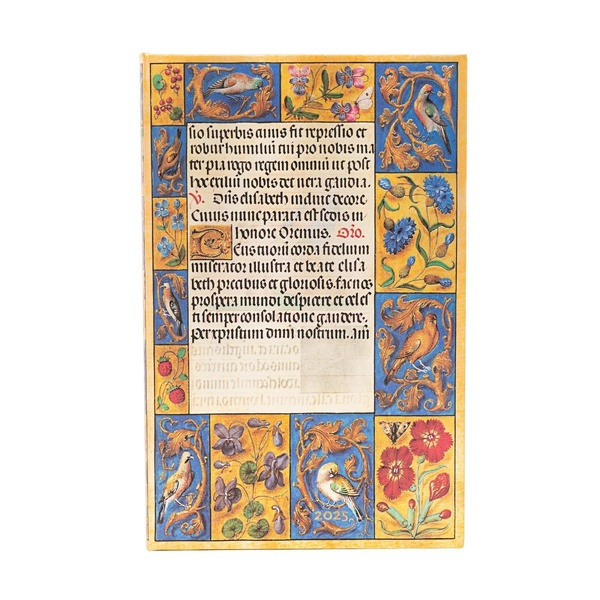 sio superbis animis fit repressio et
robur humiliū tui pro nobis ma
ter pia rogo regem omniū ut post
hoc exiliū nobis det vera gaudia.
V. Dn̄s elisabeth induit decore.
Cuius nunc parata est sedis in
honore Oremus. Oro.
Deus tuorū corda fidelium
miserator illustra et beate elisa
beth precibus et gloriosis. fac nos
prospera mundi despicere et celes
ti semper consolatione gaudere.
Per xpristum dnm̄ nostrum. am̄
2025